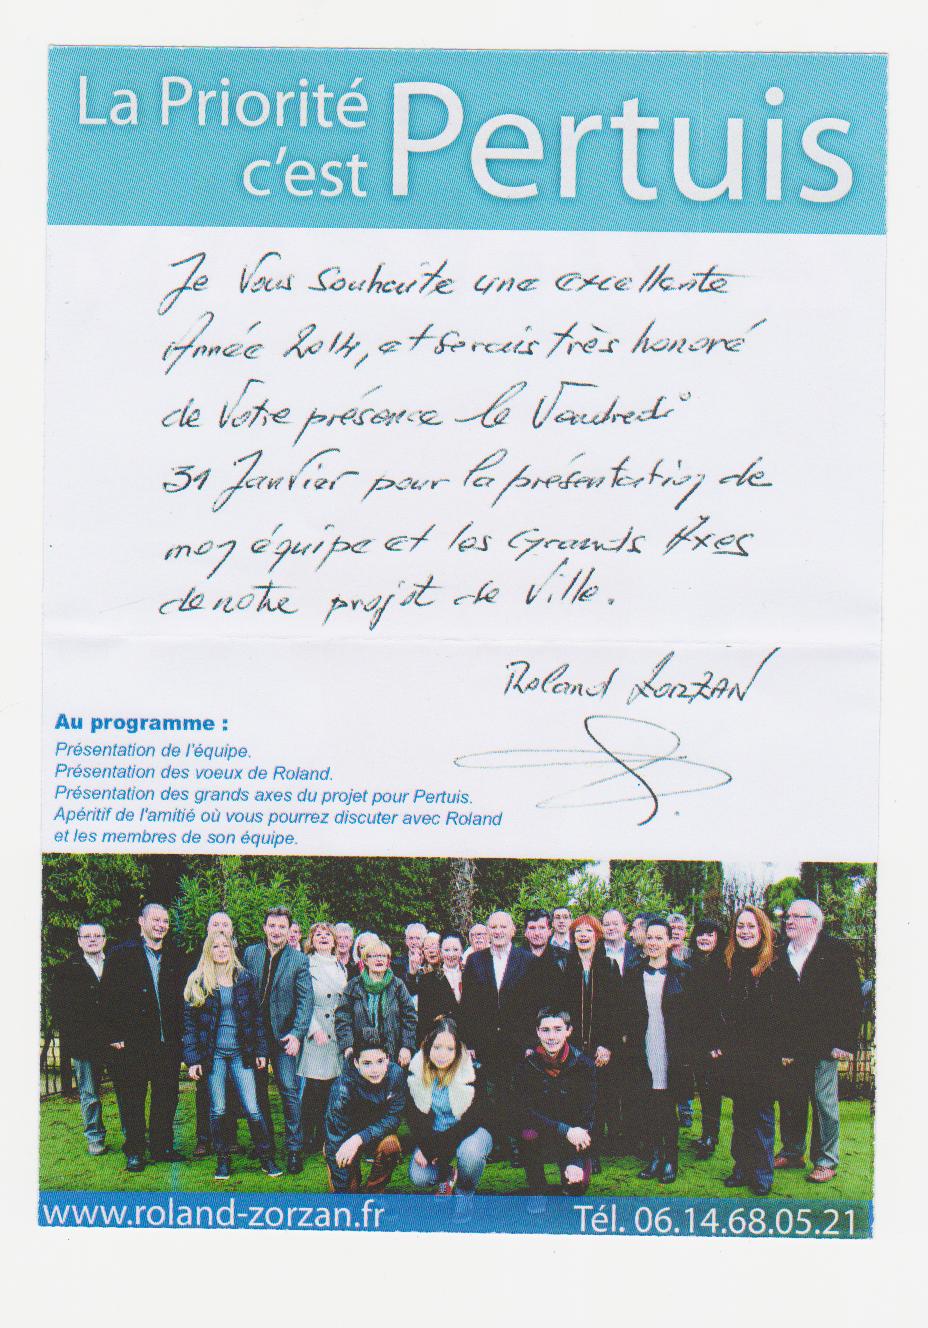 La Priorité
c'est Pertuis
Je Vous Souhaite une excellente
Année 2014, et serais très honoré
de Votre présence le Vendredi
31 Janvier pour la présentation de
mon équipe et les Grands Axes
de notre projet de Ville.
Roland ZORZAN
Au programme :
Présentation de l'équipe.
Présentation des voeux de Roland.
Présentation des grands axes du projet pour Pertuis.
Apéritif de l'amitié où vous pourrez discuter avec Roland
et les membres de son équipe.
www.roland-zorzan.fr Tél. 06.14.68.05.21